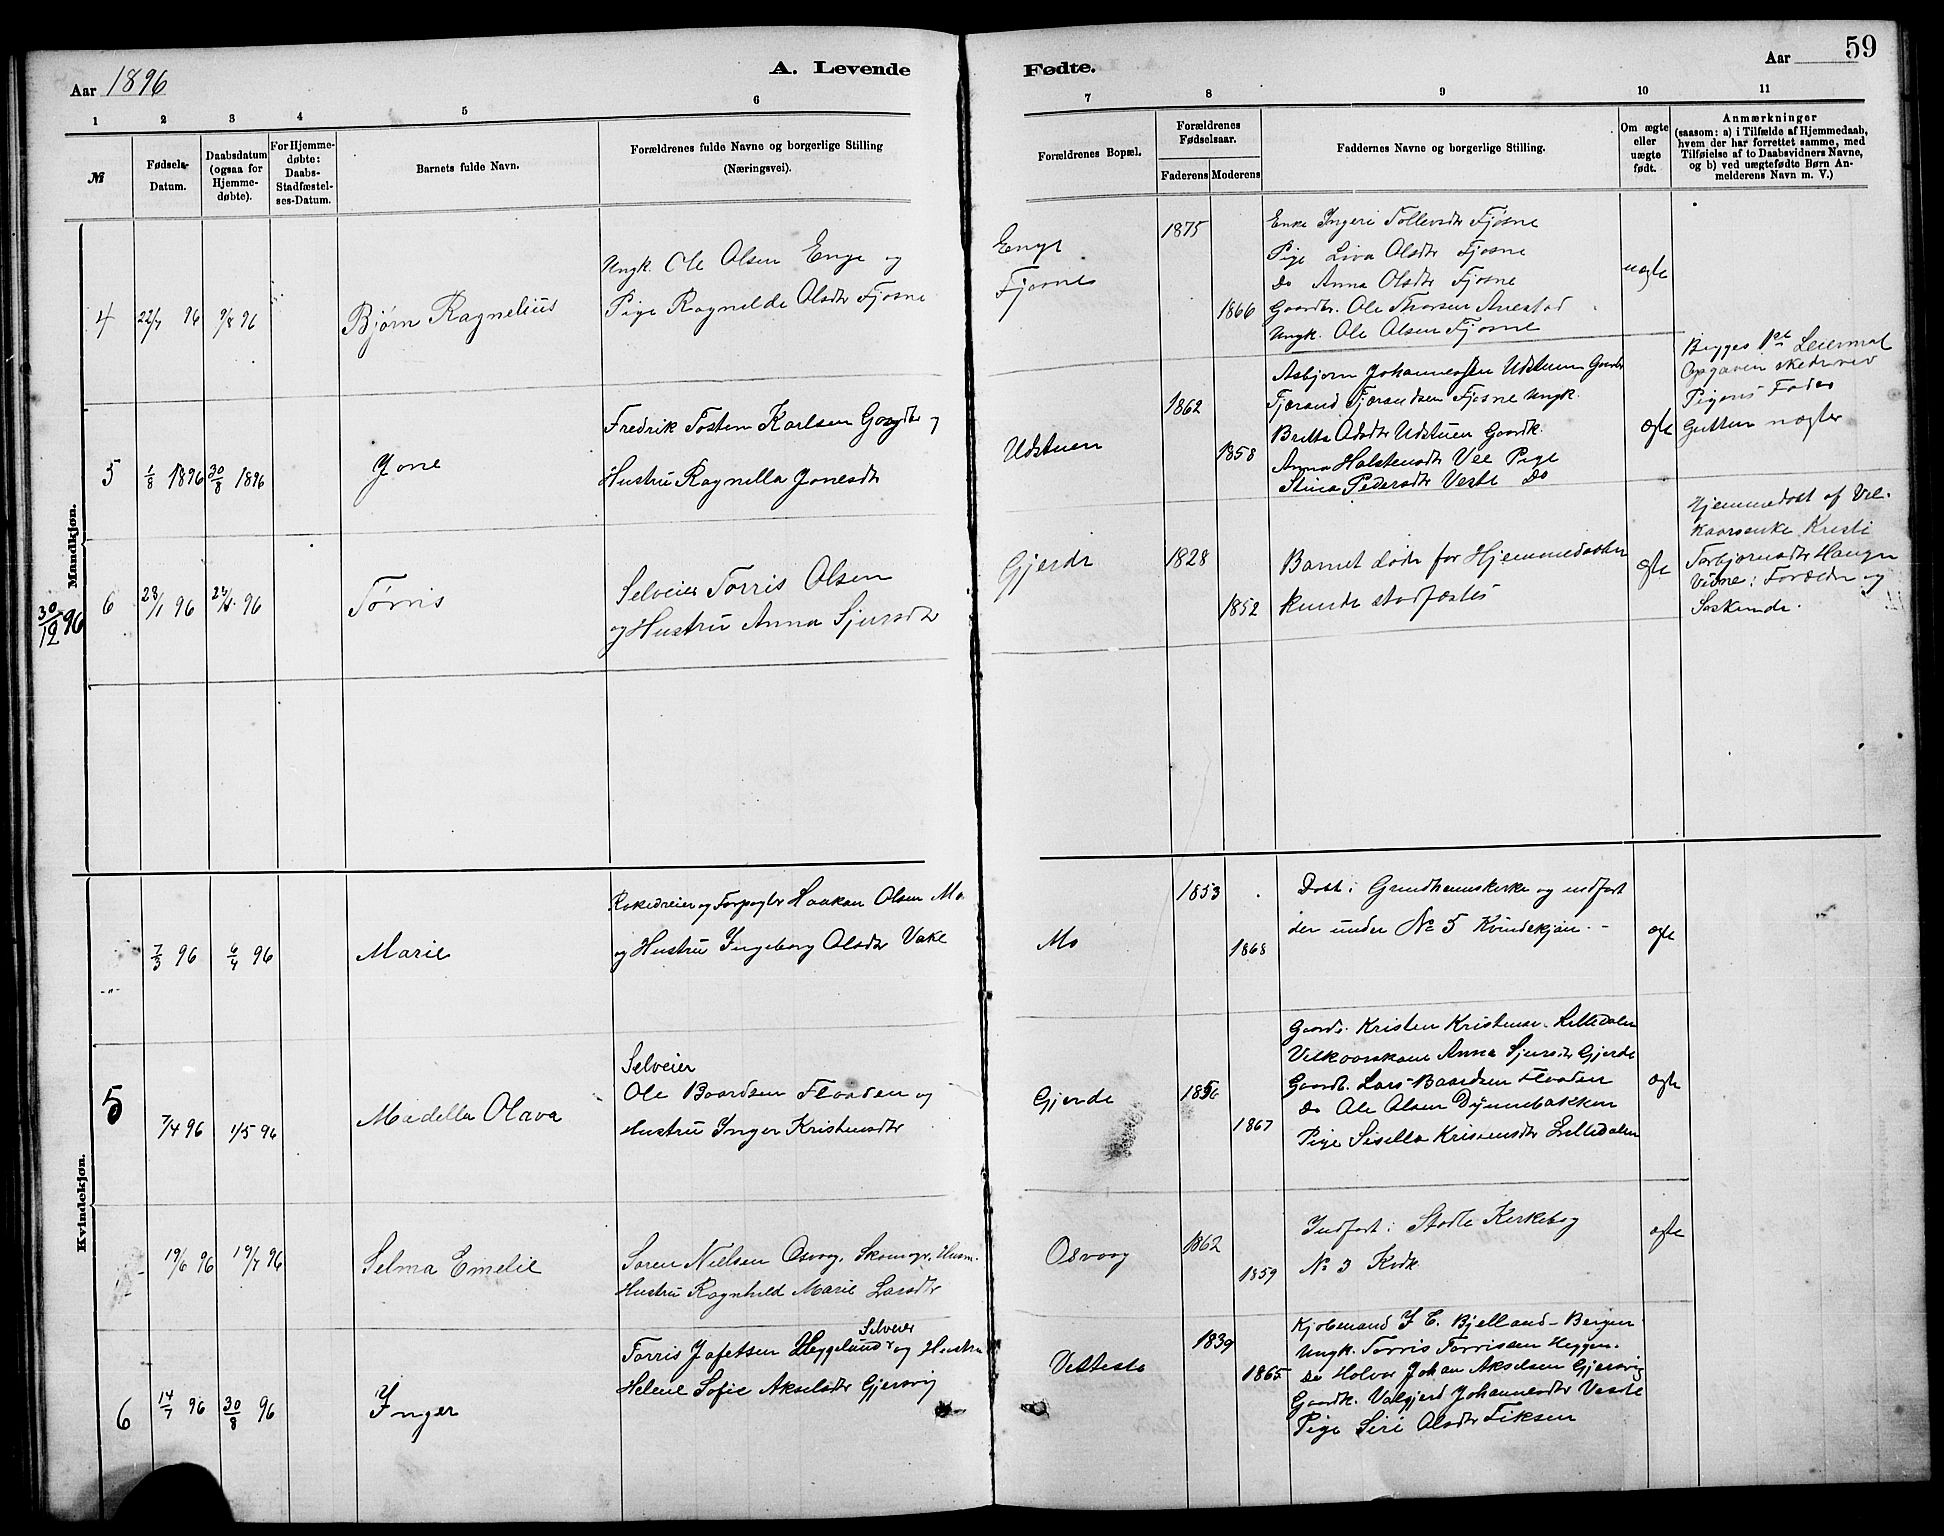 59
A. Levende
Fødte.
Aar 1896
Aar
1 2 3 4 5 6 7 8 9 10 11
№
Fødsels-Datum.
Daabsdatum (ogsaa for Hjemme-døbte).
For Hjemme-døbte: Daabs-Stadfæstel-ses-Datum.
Barnets fulde Navn.
Forældrenes fulde Navne og borgerlige Stilling
(Næringsvei).
Forældrenes Bopæl.
Forældrenes Fødselsaar.
Faderens Moderens
Faddernes Navne og borgerlige Stilling.
Om ægte eller uægte født.
Anmærkninger
(saasom: a) i Tilfælde af Hjemmedaab,
hvem der har forrettet samme, med
Tilføielse af to Daabsvidners Navne,
og b) ved uægtefødte Børn An-
melderens Navn m. V.)
Mandkjøn.
4 22/7 96 9/8 96
Bjørn Ragnelius
Ungk. Ole Olsen Enge og
Pige Ragnelde Olsdtr Fjøsne
Enge
Fjøsne
1875
1866
Enke Ingeri Tollevsdtr Fjøsne
Pige Liva Olsdtr Fjøsne
Do Anna Olsdtr Fjøsne
Gaardbr. Ole Thorsen Anestad
Ungk. Ole Olsen Fjøsne
uægte
Begges 1ste Leiermaal
Opgaven skede ved
Pigens Fader
Gutten nægter
5 1/8 1896 30/8 1896
Jone
Fredrik Tosten Karlsen Gaardbr og
Hustru Ragnella Jonesdtr
Udstuen
1862
1858
Asbjørn Johannessen Udstuen Gaardbr
Tjerand Tjerandsen Fjøsne Ungk.
Britta Olsdtr Udstuen Gaardk.
Anna Halstensdtr Vee Pige
Stina Pedersdtr Veste Do
ægte
30/12 96
6 23/1 96 23/1 96
Tørris
Selveier Torris Olsen
og Hustru Anna Sjursdtr
Gjerde
1828
1852
Barnet døde før Hjemmedaaben
kunde stadfæstes
ægte
Hjemmedøbt af Vil-
kaarsenke Kristi
Torbjørnsdtr Haugen
Vidne: Forældre og
Søskende.
Kvindekjøn.
7/3 96 6/4 96
Marie
og Forpagter Haakon Olsen Mo
og Hustru Ingeborg Olsdtr Vake
Mo
1853
1868
Døbt i Grindheimskirke og indført
der under № 5 Kvindekjøn.
ægte
5 7/4 96 1/5 96
Madella Olava
Selveier
Ole Baardsen Flaaden og
Hustru Inger Kristensdtr
Gjerde
1856
1867
Gaardb. Kristen Kristense. Lilledalen
Vilkaarskone Anna Sjursdtr Gjerde
Gaardb. Lars Baardsen Flaaden
Do Ole Olsen Dynnebakken
Pige Sisella Kristensdtr Lilledalen
ægte
19/6 96 19/7 96
Selma Emelie
Søren Nielsen Osvog, Skomager, Husm.
Hustru Ragnhild Marie Larsdtr
Osvaag
1862
1859
Indført i Stødle Kirkebog
№ 3 Kvdk
ægte
6 14/7 96 30/8 96
Inger
Selveier
Torris Jafetsen Heggelund og Hustru
Helene Sofie Akselsdtr Gjersvig
Vesteste
1839
1865
Kjøbmand J. C. Bjelland - Bergen
Ungk. Torris Torrissen Heggen.
Do Holver Johan Akselsen Gjersvig
Gaardk. Valgjerd Johannesdtr Veste
Pige Siri Olsdtr Fiksen